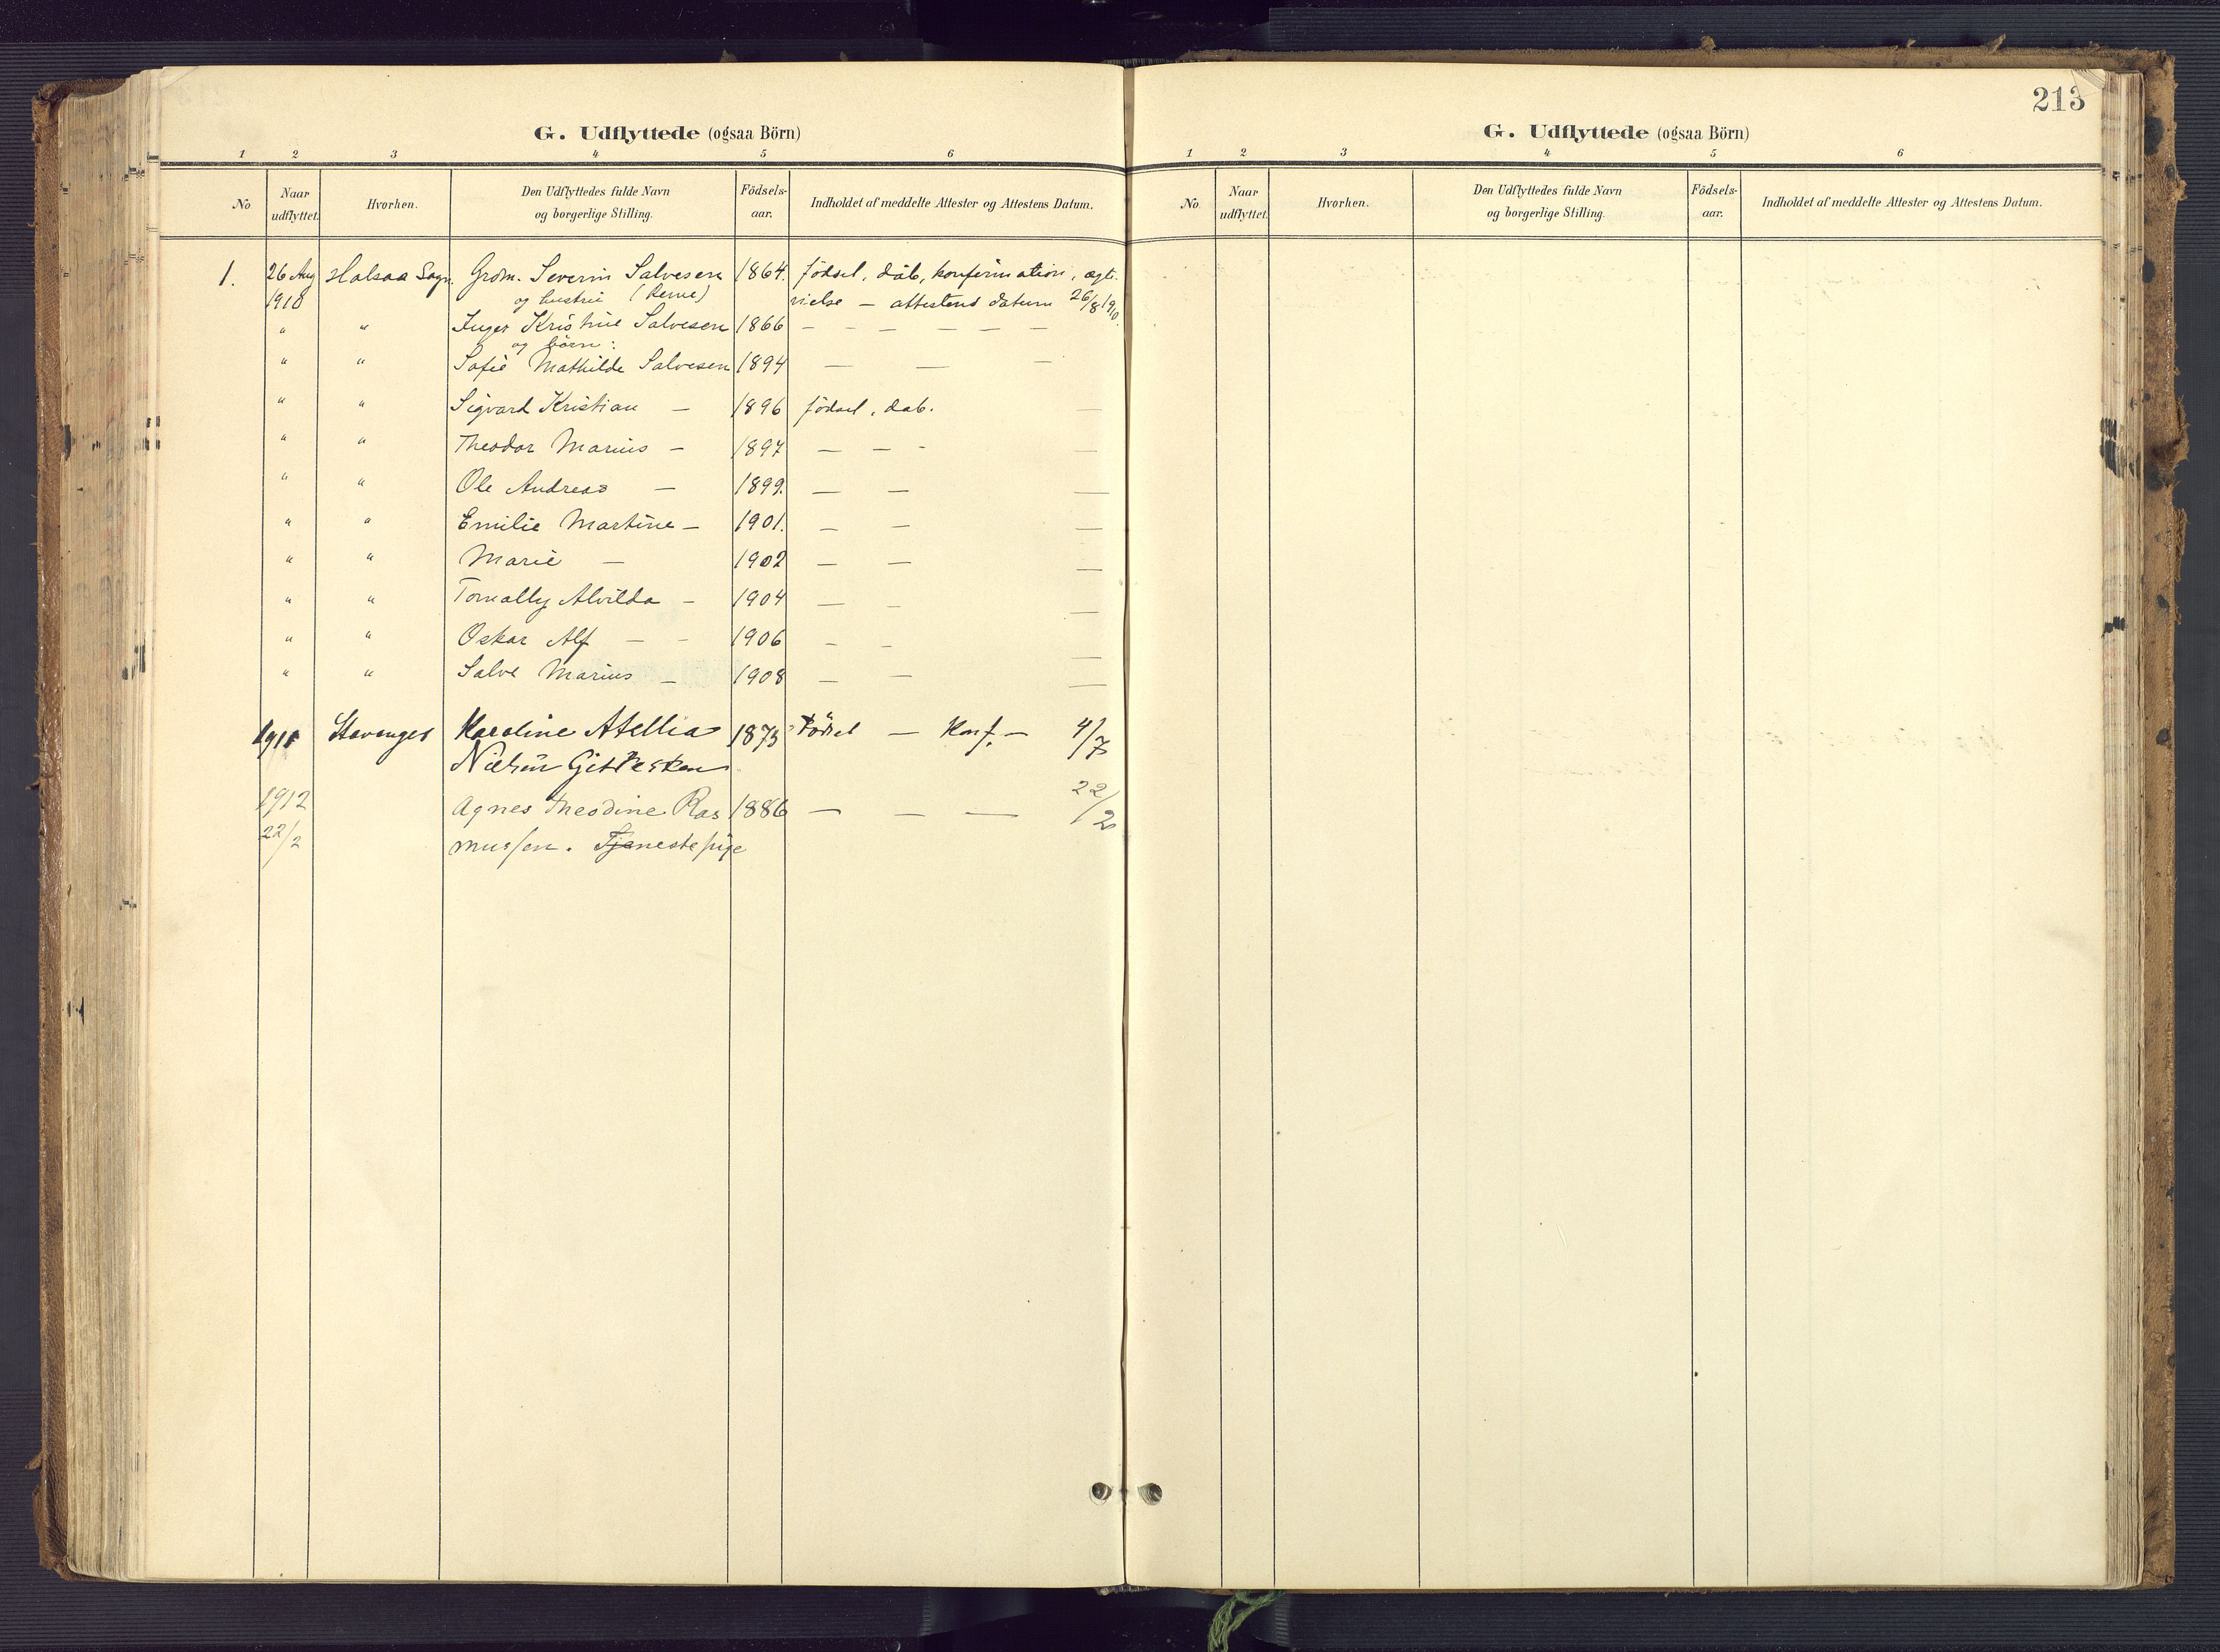 G. Udflyttede (ogsaa Börn)
1 2 3 4 5 6
No Naar udflyttet. Hvorhen. Den Udflyttedes fulde Navn og borgerlige Stilling. Födsels-aar. Indholdet af meddelte Attester og Attestens Datum.
1. 26 Aug Halsaa Sogn. Grdm. Severin Salvesen 1864. födsel, dåb, konfirmation, ægte-
1910 og hustru vielse – attestens datum 26/8 1910.
" " Inger Kristine Salvesen 1866 – – – – – –
og börn:
" " Sofie Mathilde Salvesen 1894 — — —
" " Sigvard Kristian — 1896 födsel, dåb. —
" " Theodor Marius — 1897 — — - —
" " Ole Andreas — 1899. — — —
" " Emilie Martine — 1901. — — —
" " Marie — 1902 — — —
" " Tomally Alvilda — 1904 — — —
" " Oskar Alf — - 1906 - - —
" " Salve Marius — 1908 — — —
1911 Stavanger Karoline Atellia 1873 Födsel — Konf. — 4/7
Nielsen
1912 Agnes Theodine Ras 1886 — — — 22/2
22/2 mussen. Tjenestepige
213
G. Udflyttede (ogsaa Börn)
1 2 3 4 5 6
No. Naar udflyttet. Hvorhen. Den Udflyttedes fulde Navn og borgerlige Stilling. Födsels-aar. Indholdet af meddelte Attester og Attestens Datum.